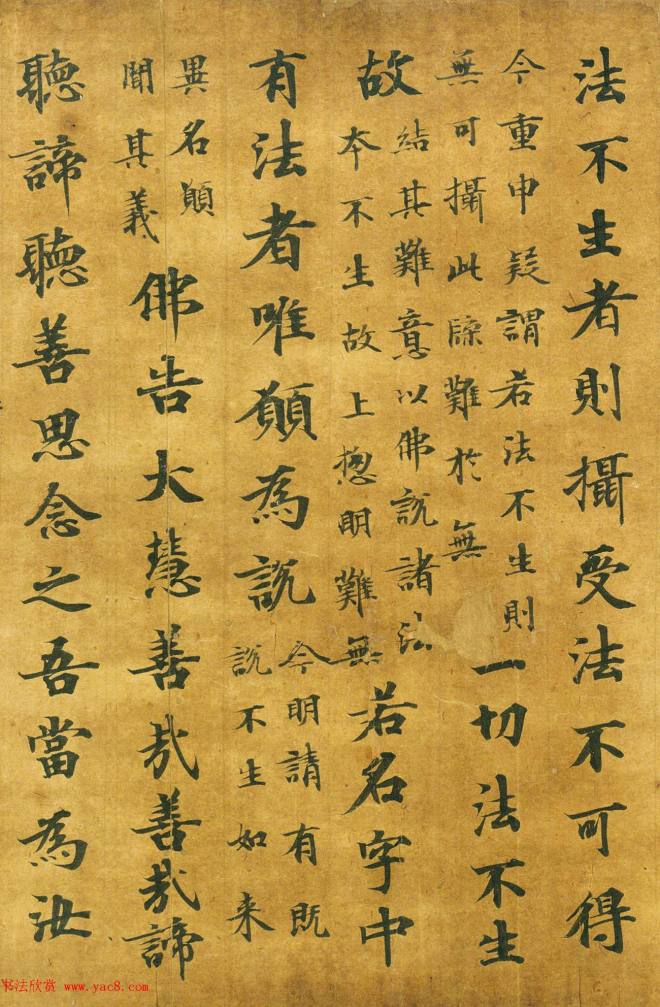 法不生者則攝受法不可得
今重申疑謂若法不生則
無可攝此牒難於無
一切法不生
故
結其難意以佛說諸法
夲不生故上揔明難無
若名字中
有法者唯願為說
今明請有既
說不生如来
異名願
聞其義
佛告大慧善哉善哉諦
聽諦聽善思念之吾當為汝
书法欣赏 www.yac8.com